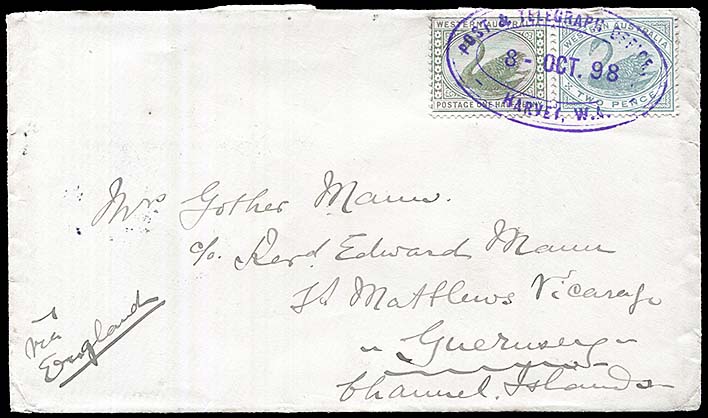 WESTERN AUSTRALIA
POSTAGE ONE HALF PENNY
WESTERN AUSTRALIA
TWO PENCE
POST & TELEGRAPH OFFICE,
8- OCT. 98
HARVEY, W.A.
Mrs Gother Mann.
c/o. Revd. Edward Mann
St Matthews Vicarage
Guernsey
Channel Islands
via
England